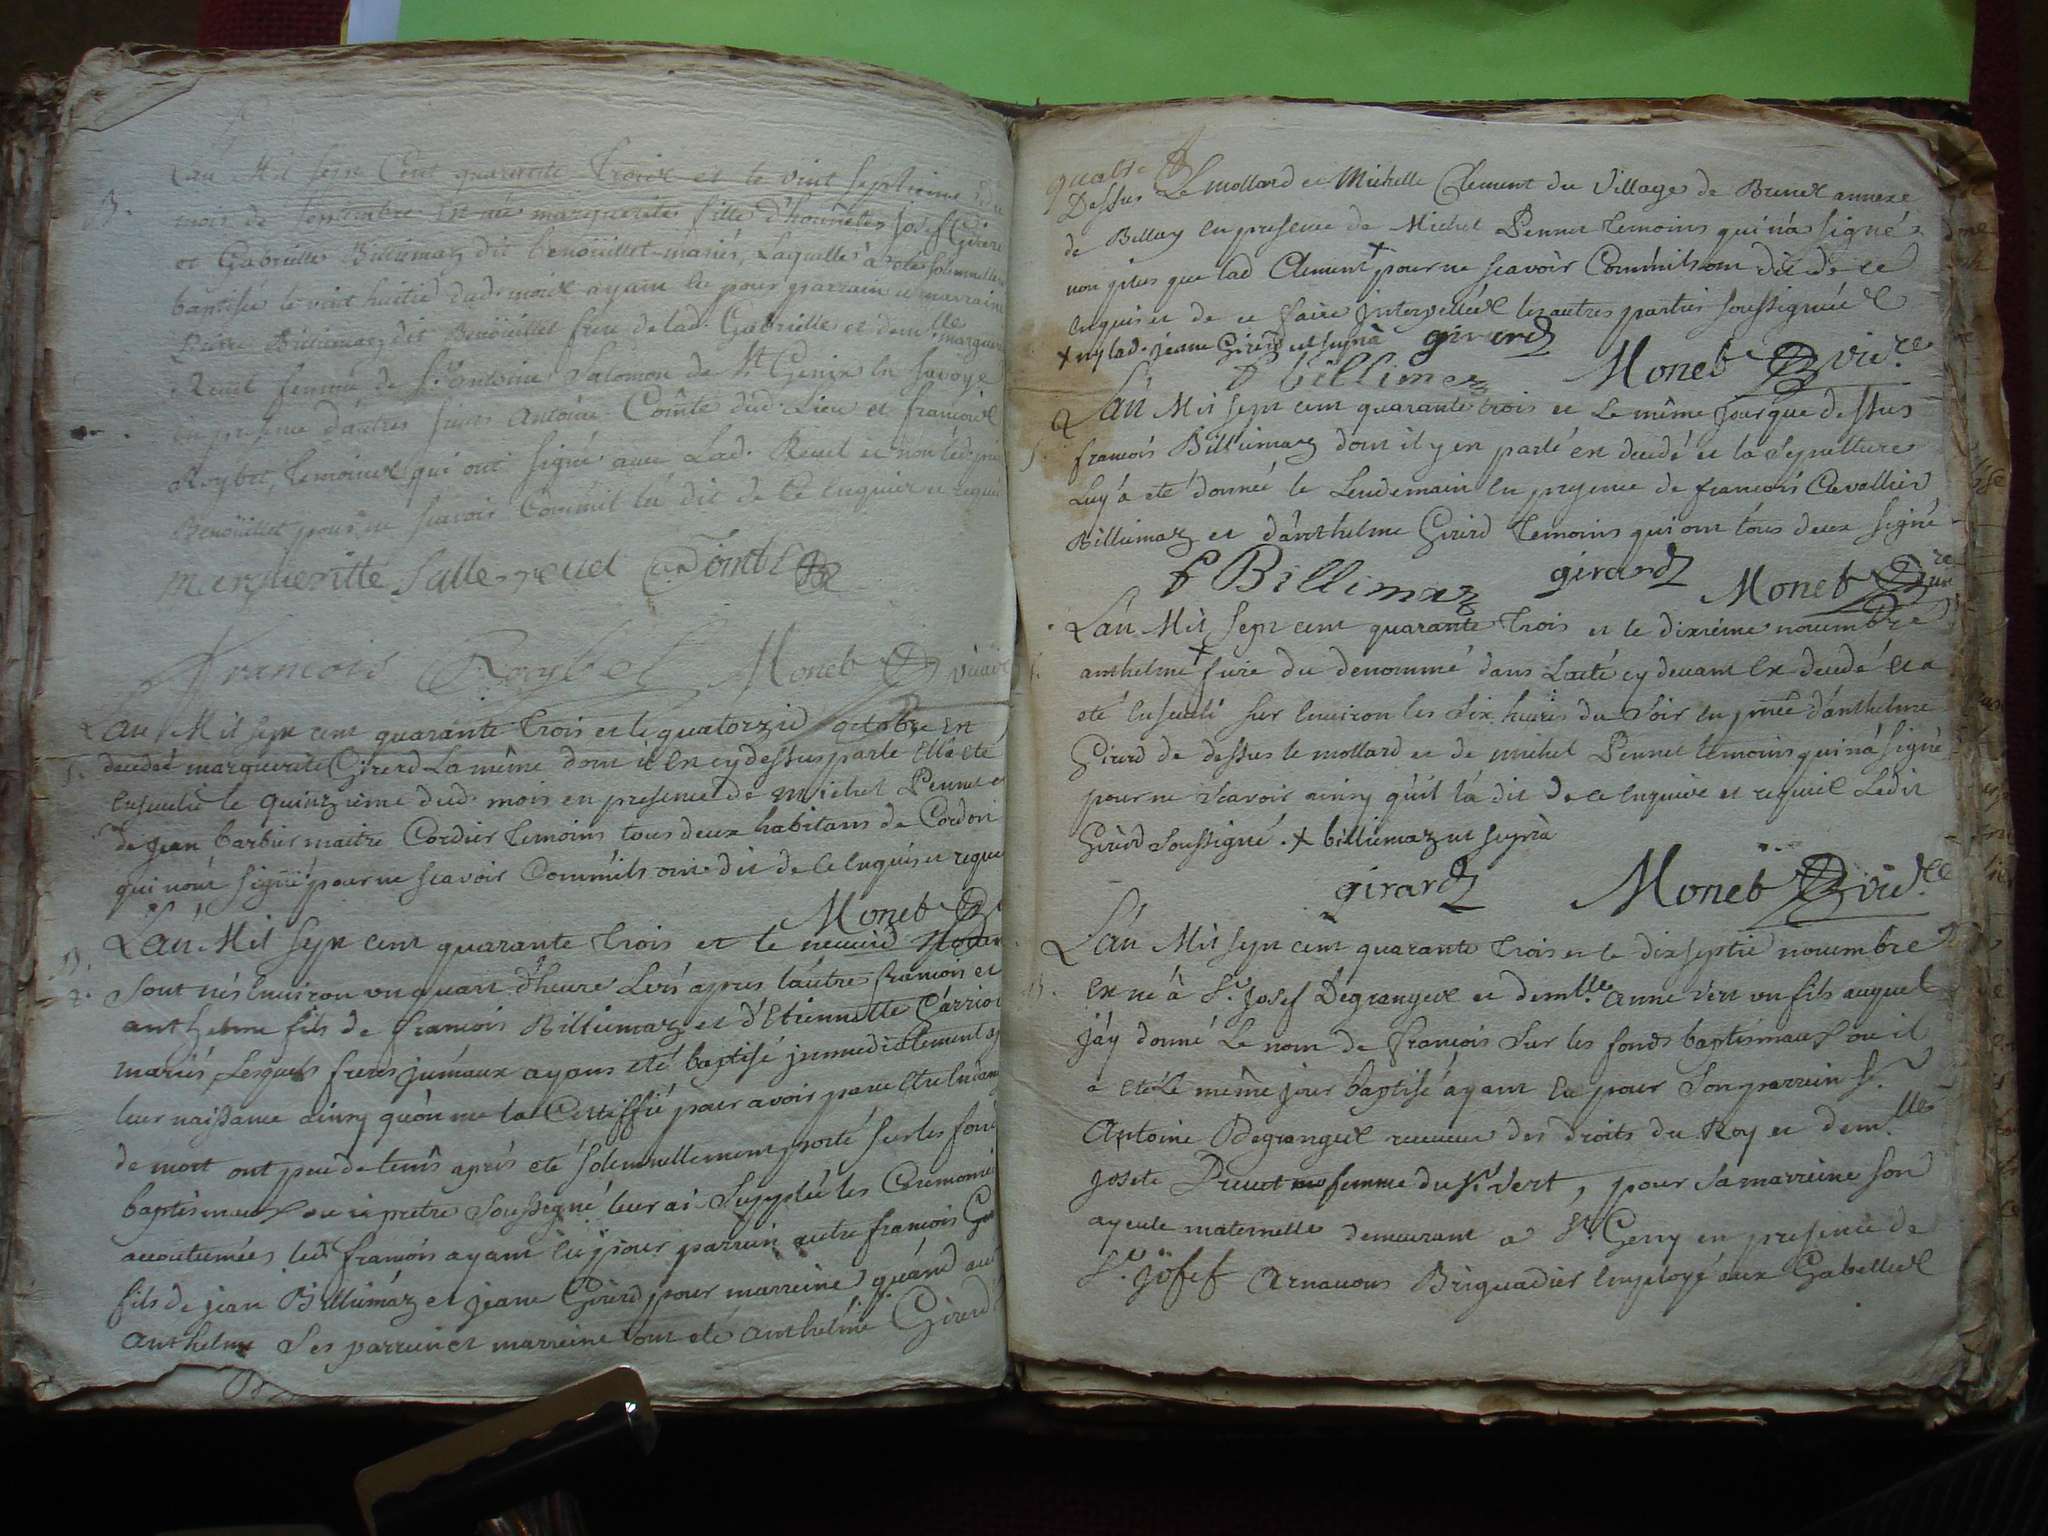 L'an Mil sept Cent quarante Trois et le vint septieme du
3.
mois de septembre est née marguerite fille d'hounêtes Josef Girerd
et Gabrielle Billiimaz dit benoüillet mariés, Laquelle à été solemnellem
baptisée le vint huitie dud. mois ayant eu pour parrain et marraine
Pierre Billiimaz dit Benoüillet frere de lad. Gabrielle et demlle margueri
Revel femme de Sr. Antoine Salomon de St Genix en Savoye
en presence d'autres sieurs Antoine Comte dud. Lieu et francois
Roybet, temoins qui ont signé avec Lad. Revel et non led. pierre
Benoüillet pour ne scavoir Comm'il l'a dit de ce enquis et requis
Margueritte Salle revel Comte
francois Roybet Monet vicaire
L'an Mil sept cent quarante trois et le quatorzie octobre est
5.
decedée marguerite Girerd La même dont il en cy dessus parlé Elle a eté
ensevelie le quinzieme dud. mois en presence de Michel Pennet et
de Jean barbier maitre Cordier temoins tous deux habitans de Cordon
qui n'ont signé pour ne scavoir Comm'ils ont dit de ce enquis et requis
Monet
L'an Mil sept cent quarante trois et le neuvie novem
B. 2.
sont nés environ un quart d'heure L'un après l'autre francois et
anthelme fils de francois Billiimaz et d'Etiennette Carrion
mariés, Lesquels freres jumeaux ayans eté baptisé jmmediatement ap
leur naissance ainsy qu'on me l'a Certiffié pour avoir paru etre en dang
de mort ont peu de tems après eté solemnellement porté sur les fonds
baptismaux ou je pretre soussigné leur ai supplée les Ceremonies
accoutumées led. francois ayant eu pour parrain autre francois
fils de jean Billiimaz et jeane Girerd pour marreine, quand aud
anthelme ses parrein et marreine ont eté anthelme Girerd
quatre
Dessus Le mollard et Michelle Clement du Village de Brenet annexe
de Bellay en presence de Michel Pennet temoins qui n'a signés
non plus que lad Clement + pour ne scavoir Comm'ils ont dit de ce
enquis et de ce faire jnterpellés les autres parties soussignées
+ ny lad. jeane Girerd ut supra girard
f billimaz Monet vicre
L'an Mil sept cent quarante trois et le même jour que dessus
5.
francois Billiimaz dont il y en parlé est decedé et la sepulture
Luy a eté donnée le Lendemain en presence de francois Chevallier
Billiimaz et d'anthelme Girerd temoins qui ont tous deux signé
f Billimaz girard Monet vicre
L'an Mil sept cent quarante trois et le dixieme novembre
anthelme + frere du denommé dans L'acte cy devant est decedé et a
eté enseveli sur environ les six heures du soir en pnce d'anthelme
Girerd de dessus le mollard et de michel Pennet temoins qui n'a signé
pour ne scavoir ainsy qu'il l'a dit de ce enquis et requis Ledit
Girerd soussigné. + billiimaz ut supra
girard Monet vicre
L'an Mil sept cent quarante Trois et le dix septie novembre
B.
est né à Sr. Josef Degranges et demlle. Anne Vert un fils auquel
j'ay donné Le nom de francois sur les fonds baptismaux ou il
a eté le même jour baptisé ayant eu pour son parrein Sr.
Antoine Degranges receveur des droits du Roy et demlle
josete femme du Sr. Vert, pour sa marreine son
ayeule maternelle demeurant a St. Geny en presence de
Sr. josef Arnavons Briguadier employé aux Gabelles